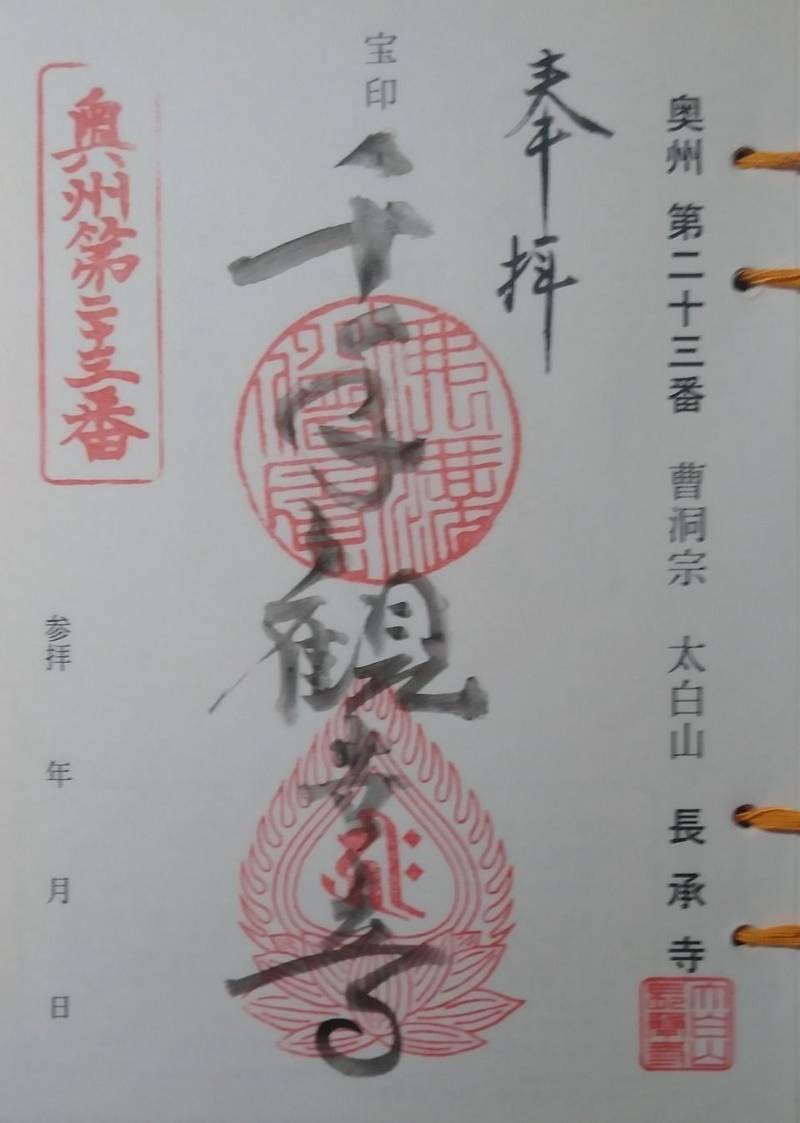 奥州 第二十三番 曹洞宗 太白山 長承寺
奉拝
宝印
千手観世音
奥州第二十三番
参拝 年 月 日